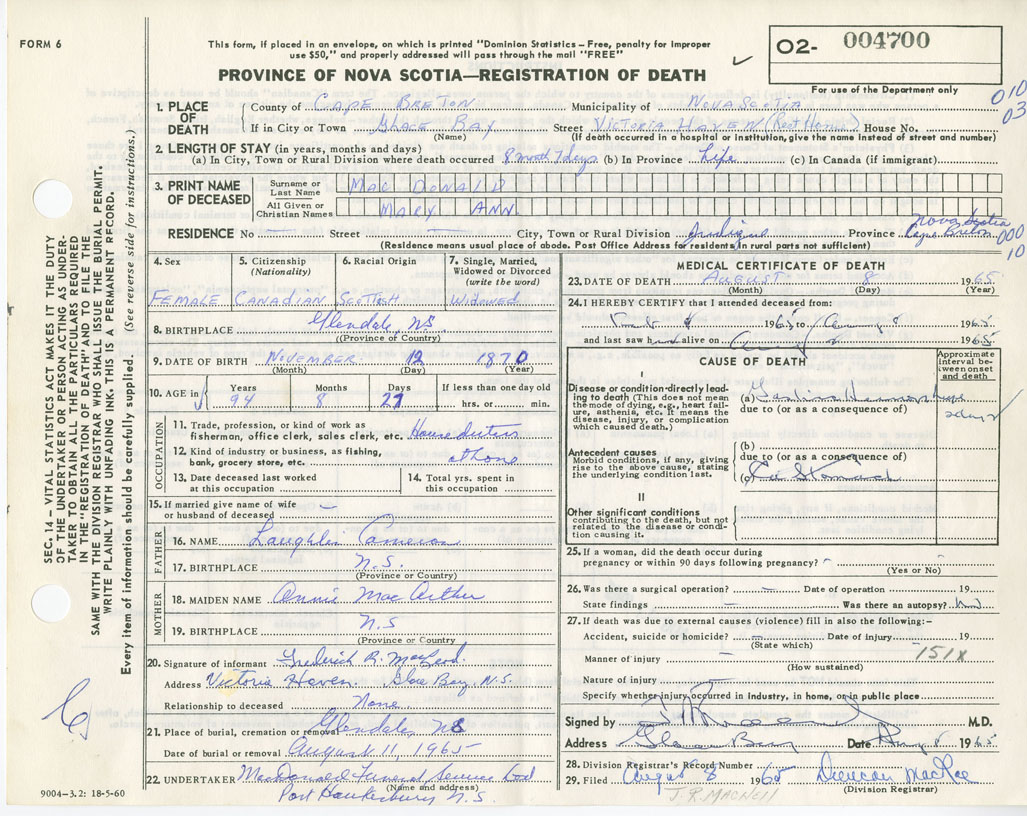 FORM 6
This form, if placed in an envelope, on which is printed "Dominion Statistics – Free, penalty for improper
use $50," and properly addressed will pass through the mail "FREE"
PROVINCE OF NOVA SCOTIA—REGISTRATION OF DEATH
02- 004700
For use of the Department only
010
03
1. PLACE OF DEATH
County of CAPE BRETON Municipality of NOVA SCOTIA
If in City or Town GLACE BAY Street VICTORIA HAVEN (Rest Home) House No.
(Name) (If death occurred in a hospital or institution, give the name instead of street and number)
2. LENGTH OF STAY (in years, months and days)
(a) In City, Town or Rural Division where death occurred 8 month 7 days (b) In Province Life (c) In Canada (if immigrant)
3. PRINT NAME OF DECEASED
Surname or Last Name MAC DONALD
All Given or Christian Names MARY ANN
RESIDENCE No Street City, Town or Rural Division Judique Province Nova Scotia Cape Breton
000
10
(Residence means usual place of abode. Post Office Address for residents in rural parts not sufficient)
4. Sex
FEMALE
5. Citizenship (Nationality)
CANADIAN
6. Racial Origin
SCOTTISH
7. Single, Married, Widowed or Divorced (write the word)
WIDOWED
8. BIRTHPLACE Glendale, NS.
(Province of Country)
9. DATE OF BIRTH NOVEMBER 12 1870
(Month) (Day) (Year)
10. AGE in
Years 94
Months 8
Days 27
If less than one day old
hrs. or min.
OCCUPATION
11. Trade, profession, or kind of work as
fisherman, office clerk, sales clerk, etc. House duties
12. Kind of industry or business, as fishing,
bank, grocery store, etc. at home
13. Date deceased last worked
at this occupation
14. Total yrs. spent in
this occupation
15. If married give name of wife
or husband of deceased –
FATHER
16. NAME Laughlin Cameron
17. BIRTHPLACE N.S.
(Province or Country)
MOTHER
18. MAIDEN NAME Annie MacArthur
19. BIRTHPLACE N.S
(Province or Country
20. Signature of informant Frederick R. MacLeod
Address Victoria Haven. Glace Bay, N.S.
Relationship to deceased None
21. Place of burial, cremation or removal Glendale, NS
Date of burial or removal August 11, 1965
22. UNDERTAKER MacDonald Funeral Service Ltd
(Name and address)
Port Hawkesbury N.S.
9004–3.2: 18-5-60
MEDICAL CERTIFICATE OF DEATH
23. DATE OF DEATH AUGUST 8 1965
(Month) (Day) (Year)
24. I HEREBY CERTIFY that I attended deceased from:
1965 to Aug 8 1965
and last saw h alive on Aug 1965
CAUSE OF DEATH
Approximate interval between onset and death
I
Disease or condition directly leading to death (This does not mean the mode of dying, e.g., heart failure, asthenia, etc. It means the disease, injury, or complication which caused death.)
(a) Hemorrhage
due to (or as a consequence of)
days
Antecedent causes
Morbid conditions, if any, giving rise to the above cause, stating the underlying condition last.
(b)
due to (or as a consequence of)
(c) Ca Stomach
II
Other significant conditions
contributing to the death, but not related to the disease or condition causing it.
25. If a woman, did the death occur during
pregnancy or within 90 days following pregnancy? –
(Yes or No)
26. Was there a surgical operation? – Date of operation 19
State findings – Was there an autopsy? No
27. If death was due to external causes (violence) fill in also the following:–
Accident, suicide or homicide? – Date of injury 19
(State which)
151X
Manner of injury –
(How sustained)
Nature of injury
Specify whether injury occurred in industry, in home, or in public place
Signed by M.D.
Address Glace Bay Date Aug 8 1965
28. Division Registrar's Record Number
29. Filed August 8 1965 Duncan MacRae
(Division Registrar)
J. R. MACNEIL
SEC. 14 – VITAL STATISTICS ACT MAKES IT THE DUTY
OF THE UNDERTAKER OR PERSON ACTING AS UNDER-
TAKER TO OBTAIN ALL THE PARTICULARS REQUIRED
IN THE "REGISTRATION OF DEATH" AND TO FILE THE
SAME WITH THE DIVISION REGISTRAR WHO SHALL ISSUE THE BURIAL PERMIT.
WRITE PLAINLY WITH UNFADING INK. THIS IS A PERMANENT RECORD.
Every item of information should be carefully supplied. (See reverse side for instructions.)